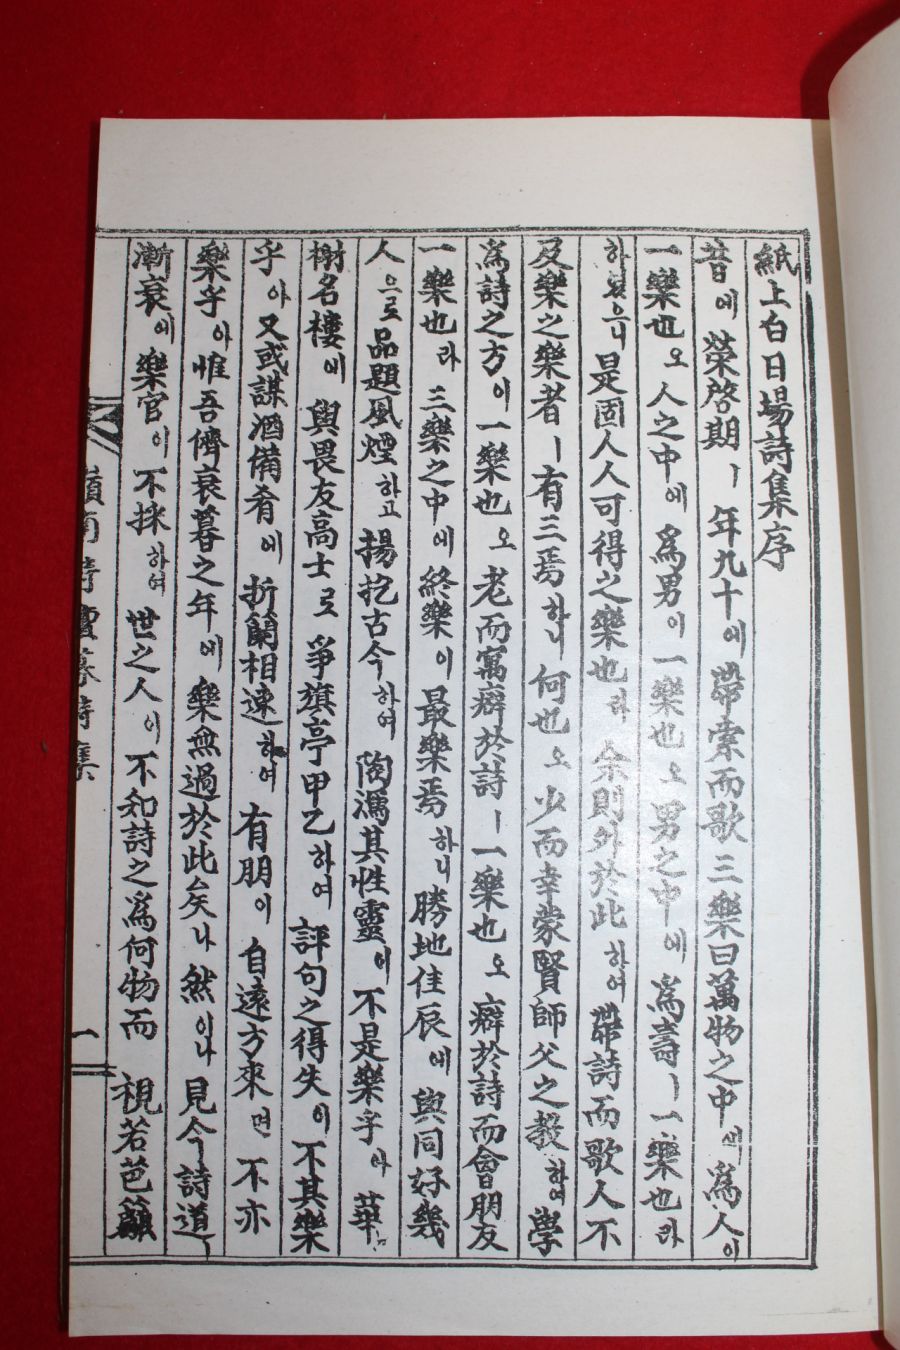 紙上白日場詩集序
昔에 榮啓期ㅣ 年九十에 帶索而歌三樂曰萬物之中에 爲人이
一樂也오 人之中에 爲男이 一樂也오 男之中에 爲壽ㅣ 一樂也라
하얏으니 是固人人可得之樂也라 余則外於此하여 帶詩而歌人不
及樂之樂者ㅣ 有三焉하니 何也오 少而幸蒙賢師父之敎하여 學
爲詩之方이 一樂也오 老而寓癖於詩ㅣ 一樂也오 癖於詩而會朋友
一樂也라 三樂之中에 終樂이 最樂焉하니 勝地佳辰에 與同好幾
人으로 品題風煙하고 揚扢古今하여 陶瀉其性靈이 不是樂乎아 華
榭名樓에 與畏友高士로 爭旗亭甲乙하여 評句之得失이 不其樂
乎아 又或謀酒備肴에 折簡相速하여 有朋이 自遠方來면 不亦
樂乎아 惟吾儕衰暮之年에 樂無過於此矣나 然이나 見今詩道
漸衰에 樂官이 不採하여 世之人이 不知詩之爲何物而 視若芭籬
嶺南詩壇 詩集
一